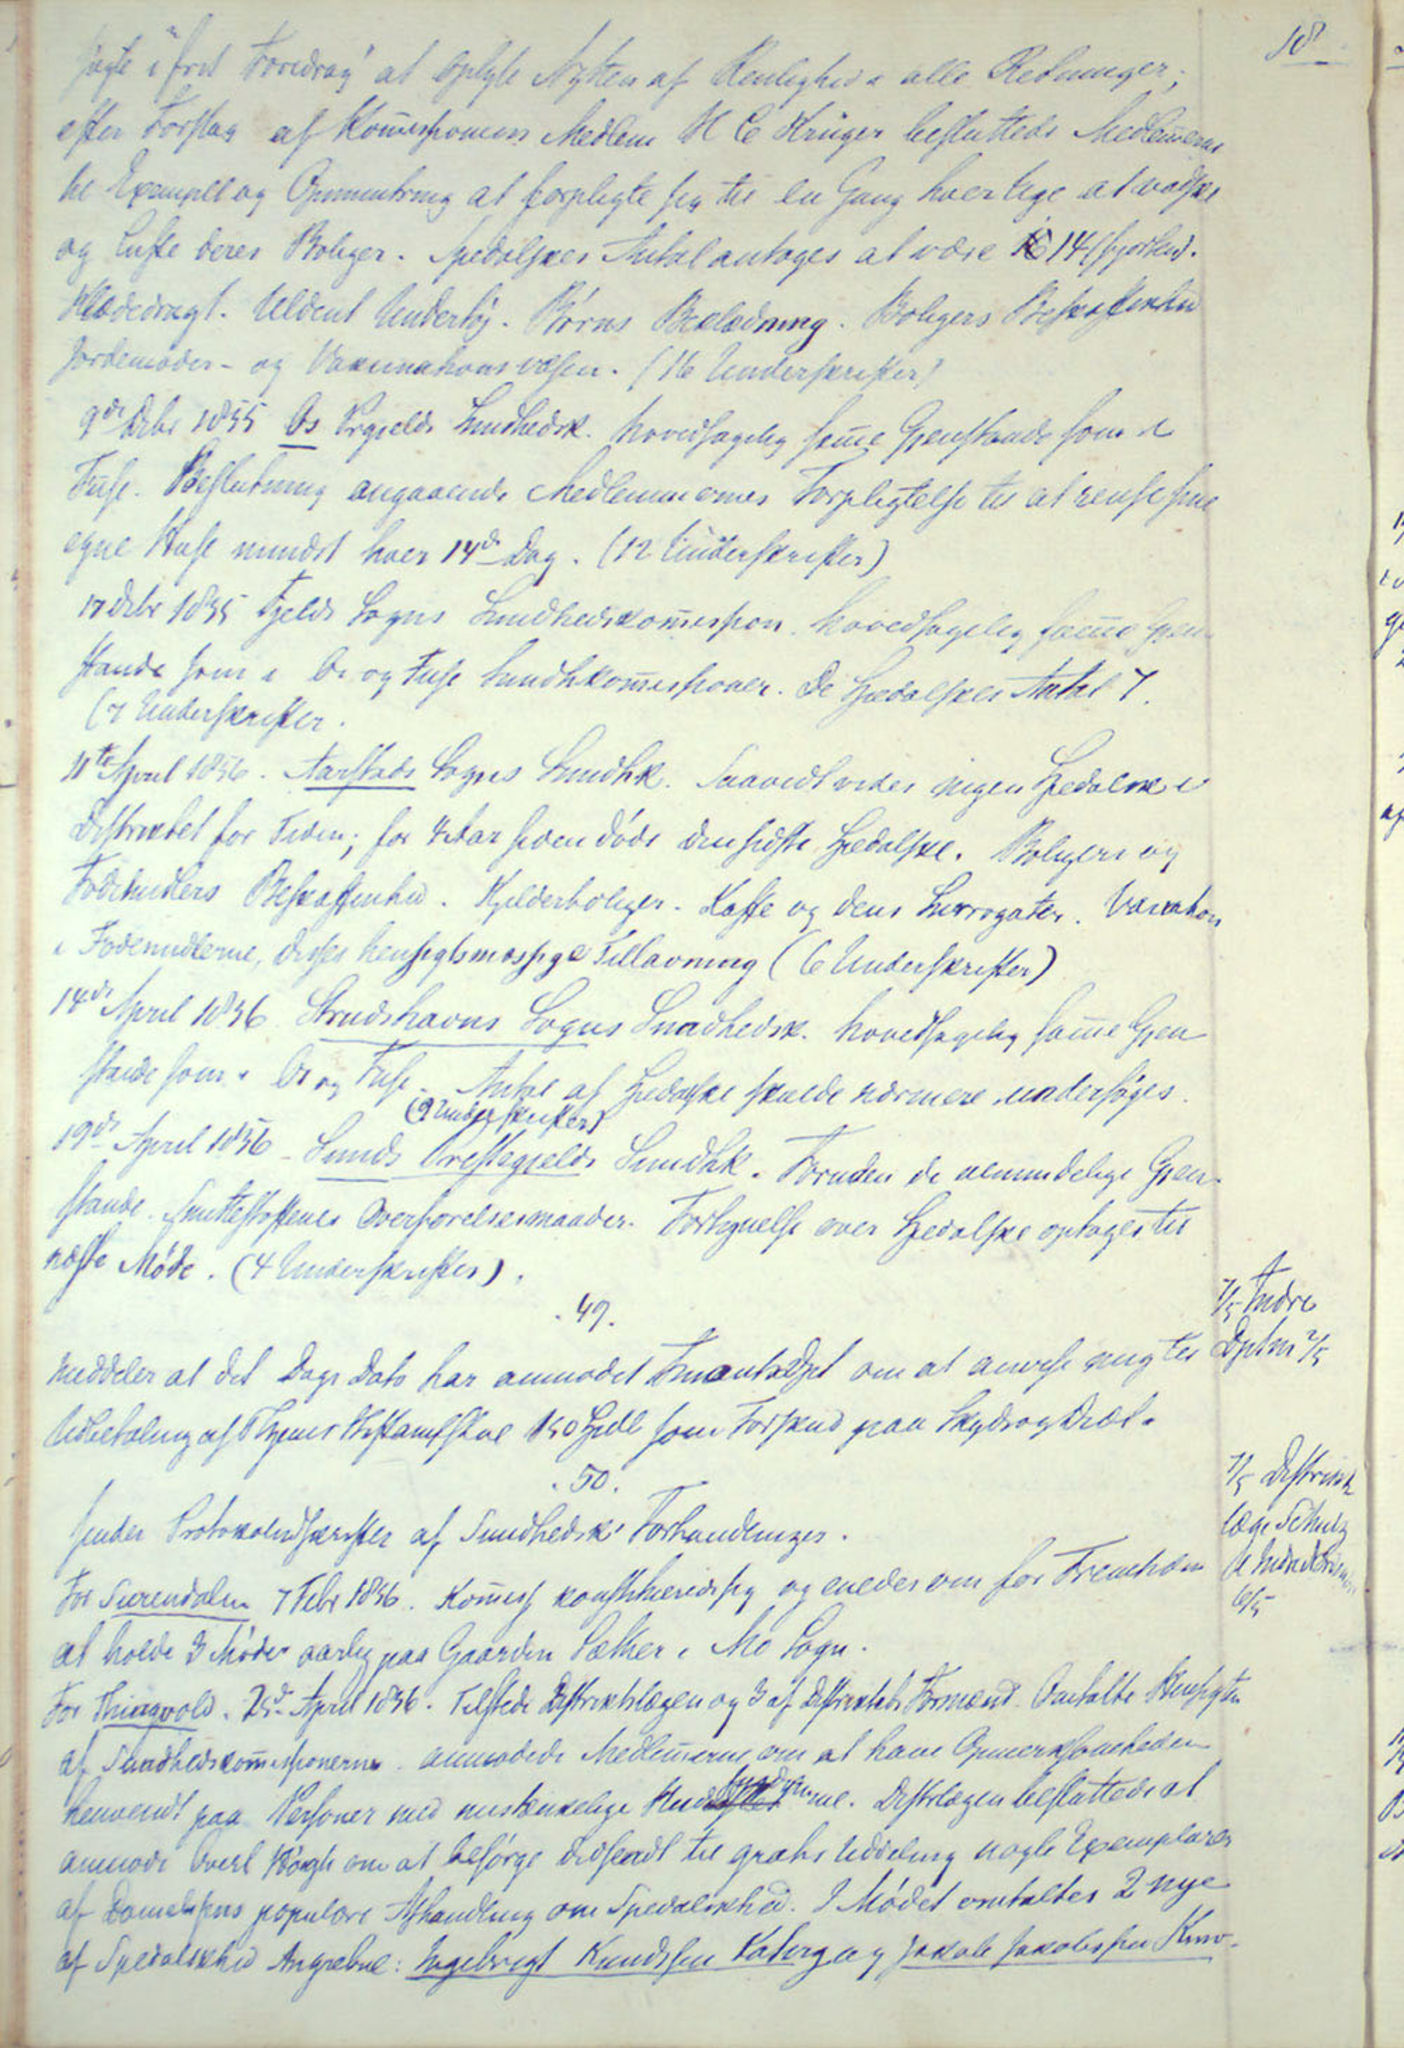 18
søgte i "frit Foredrag" at oplyse Nytten af Renlighed i alle Retninger;
efter Forslag af Kom̅issionens Medlem H C Krüger besluttede Medlem̅erne
til Exempel og Opmuntring at forpligte sig til en Gang hver Uge at vadske
og lufte deres Boliger. Spedalskes Antal antages at være 14
Klædedragt. Uldent Undertøj. Børns Beklædning. Boligers Beskaffenhed
Jordemoder- og Vaccinationsvæsen. (16 Underskrifter)
9de Debr 1855 Os Prgjelds Sundhedsk. hovedsagelig sam̅e Gjenstande som i
Fuse. Beslutning angaaende Medlemmernes Forpligtelse til at rense sine
egne Huse mindst hver 14de Dag. (12 Underskrifter)
17 Debr 1855 Fjelds Sogns Sundhedskom̅ission. hovedsagelig sam̅e Gjen-
stande som i Os og Fuse Sundhkom̅issioner. De Spedalskes Antal 7.
(7 Underskrifter.
11te April 1856. Aarstads Sogns Sundhk. Saavidt vides ingen Spedalske i
Distriktet for Tiden; for 4 Aar siden døde den sidste Spedalske. Boligers og
Fødemidlers Beskaffenhed. Kjelderboliger. Kaffe og dens Surrogater. Variation
i Fødemidlerne, disses hensigtsmæssige Tillavning (6 Underskrifter)
14de April 1856 Strudshavns Sogns Sundhedsk. hovedsagelig sam̅e Gjen
stande som i Os og Fuse. Antal af Spedalske skulde nærmere undersøges.
(9 Underskrifter)
19de April 1856 - Sunds Præstegjelds Sundhk. Foruden de almindelige Gjen-
stande. Smittestoffenes Overførelsesmaader. Fortegnelse over Spedalske optages til
næste Møde. (4 Underskrifter).
49.
7/5 Indre
Dptm 2/5
meddeler at det Dags Dato har anmodet Finantsdpt om at anvise mig til
Udbetaling af Thjems Stiftamtstue 150 Spdl som Forskud paa Skyds og Diæt.
50.
7/5 Distrikts
læge Schulz
6/5
sender Protokoludskrifter af Sundhedsk. Forhandlinger.
For Surendalen 7 Febr 1856. Kom̅iss konstitueredes sig og enedes om for Fremtiden
at holde 3 Møder aarlig paa Gaarden Sæther i Mo Sogn.
For Thingvold. 25de April 1856. Tilstede Distriktslægen og 3 af Distriktets Formænd. Omtalte Hensigten
af Sundhedskom̅issionerne. anmodede Medlem̅erne om at have Opmærksomheden
henvendt paa Personer med mistænkelige Hudsygdom̅e. Distrlægen besluttede at
anmode Overl Høegh om at besørge didsendt til gratis Uddeling nogle Exemplarer
af Danielssens populære Afhandling om Spedalskhed. I Mødet omtaltes 2 nye
af Spedalskhed Angrebne: Ingebrigt Knudssen Koberg og Jakob Jakobssen Kam-